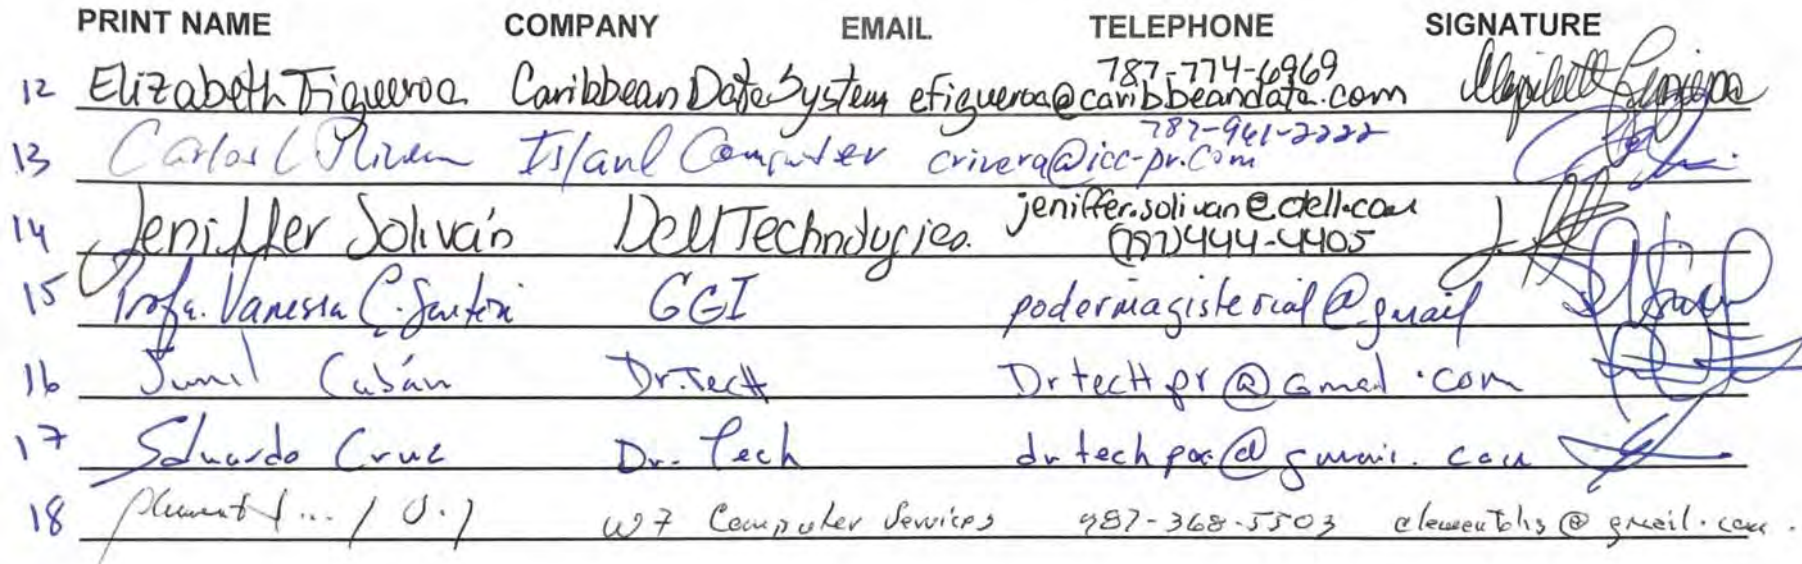 PRINT NAME COMPANY EMAIL TELEPHONE SIGNATURE
12 Elizabeth Figueroa Caribbean Data System efigueroa@caribbeandata.com 787-774-6969
13 Carlos C Rivera Island Computer crivera@icc-pr.com 787-961-2222
14 Jeniffer Soliván Dell Technologies jeniffer.solivan@dell.com (787)444-4405
15 Profa. Vanessa C. GGI podermagisterial@gmail
16 Cubán Dr.TecH DrtecHpr@Gmail.com
17 Eduardo Cruz Dr. Tech
18 W7 Computer Services 787-368-5503